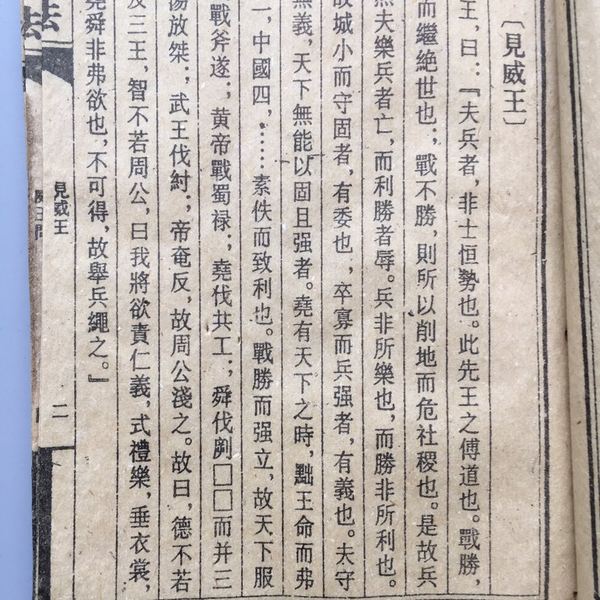 〔見威王〕
王，曰：「夫兵者，非士恒勢也。此先王之傅道也。戰勝，
而繼絕世也；戰不勝，則所以削地而危社稷也。是故兵
然夫樂兵者亡，而利勝者辱。兵非所樂也，而勝非所利也。
故城小而守固者，有委也，卒寡而兵强者，有義也。夫守
無義，天下無能以固且强者。堯有天下之時，黜王命而弗
一，中國四，……素佚而致利也。戰勝而强立，故天下服
戰斧遂；黄帝戰蜀禄；堯伐共工；舜伐劌□□而并三
湯放桀；武王伐紂；帝奄反，故周公淺之。故曰，德不若
及三王，智不若周公，曰我將欲責仁義，式禮樂，垂衣裳，
堯舜非弗欲也，不可得，故舉兵繩之。」
法
見威王
二